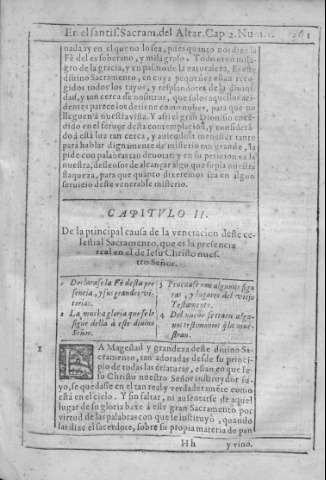 En el santiſ. Sacram. del Altar. Cap 2. Nu. 1. 261
nada; y en el que no lo ſea, pues quanto nos dize la
Fè del es ſoberano, y milagroſo. Todo es vn mila-
gro de la gracia, y vn paſmo de la naturaleza. Es eſte
diuino Sacramento, en cuya pequeñez eſtan reco-
gidos todos los rayos, y reſplandores de la diuini-
dad, y tan cerca de noſotros, que ſolos aquellos ac-
cidentes parece los detienen como nubes, para que no
lleguen à nueſtra viſta. Y aſsi el gran Dionisio encen-
dido en el fuego deſta contemplacion, y conſideran-
do à eſta luz tan cerca, y
para hablar dignamente de miſterio tan grande, la
pide con palabras tan deuotas; y en ſu peticion va la
nueſtra, deſeoſos de alcançar algo que ſupla nueſtra
flaqueza, para que quanto dixeremos ſea en algun
ſeruicio deſte venerable miſterio.
CAPITVLO II.
De la principal cauſa de la veneracion deſte ce-
leſtial Sacramento, que es la preſencia
real en el de Ieſu Chriſto nueſ-
tro Señor.
1 Declaraſe la Fè deſta pre
ſencia, y ſus grandes vi-
torias.
2 La mucha gloria que ſe le
ſigue della à eſte diuino
Señor.
3 Prueuaſe con algunas figu
ras, y lugares del viejo
Teſtamento.
4 Del nueuo ſe traen algu-
nos teſtimonios q̃ la mue-
ſtran.
1 LA Mageſtad y grandeza deſte diuino Sa-
cramento, tan adoradas deſde ſu princi-
pio de todas las criaturas, eſtan en que Ie-
ſu Chriſto nueſtro Señor inſtituydor ſu-
yo, ſe quedaſſe en el tan real y verdaderamẽte como
eſtà en el cielo. Y ſin faltar, ni auſentarſe de aquel
lugar de ſu gloria baxe à eſte gran Sacramento por
virtud de las palabras con que le inſtituyò, quando
las dize el ſacerdote, ſobre ſu propia materia de pan
Hh y vino.